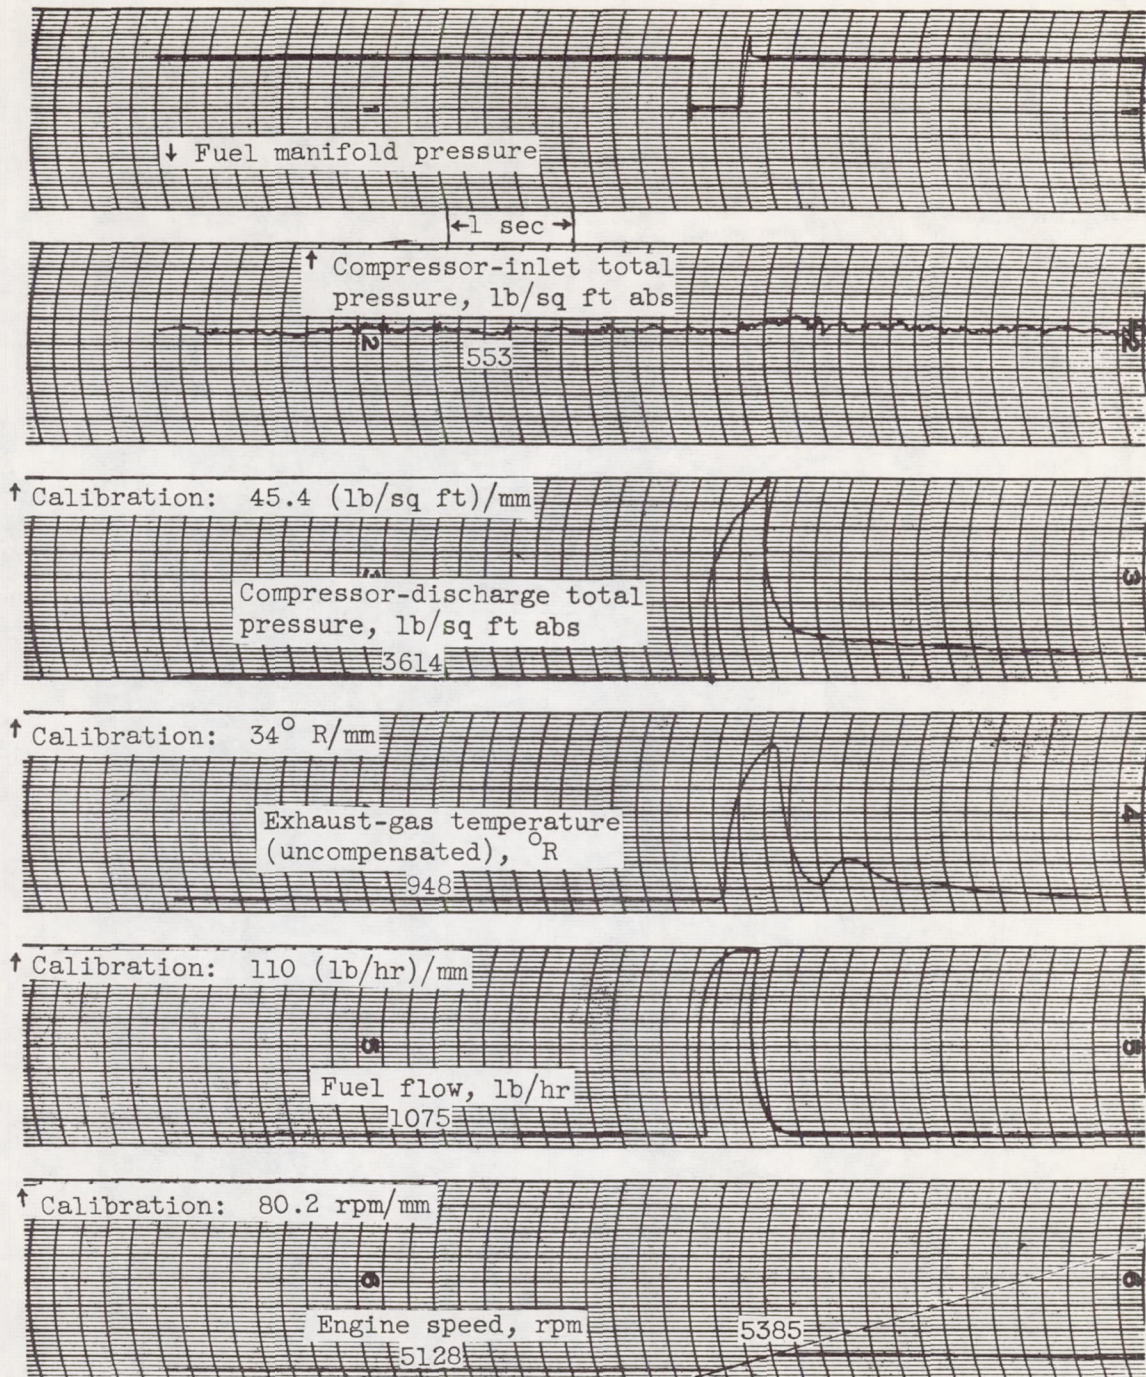 1
1
↓ Fuel manifold pressure
←1 sec→
↑ Compressor-inlet total
pressure, lb/sq ft abs
2
2
553
↑ Calibration: 45.4 (lb/sq ft)/mm
3
Compressor-discharge total
pressure, lb/sq ft abs
3614
↑ Calibration: 34° R/mm
4
Exhaust-gas temperature
(uncompensated), °R
948
↑ Calibration: 110 (lb/hr)/mm
5
5
Fuel flow, lb/hr
1075
↑ Calibration: 80.2 rpm/mm
6
6
Engine speed, rpm
5128
5385